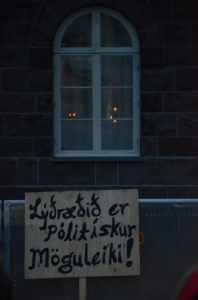 Lýðræðið er
Pólitískur
Möguleiki!